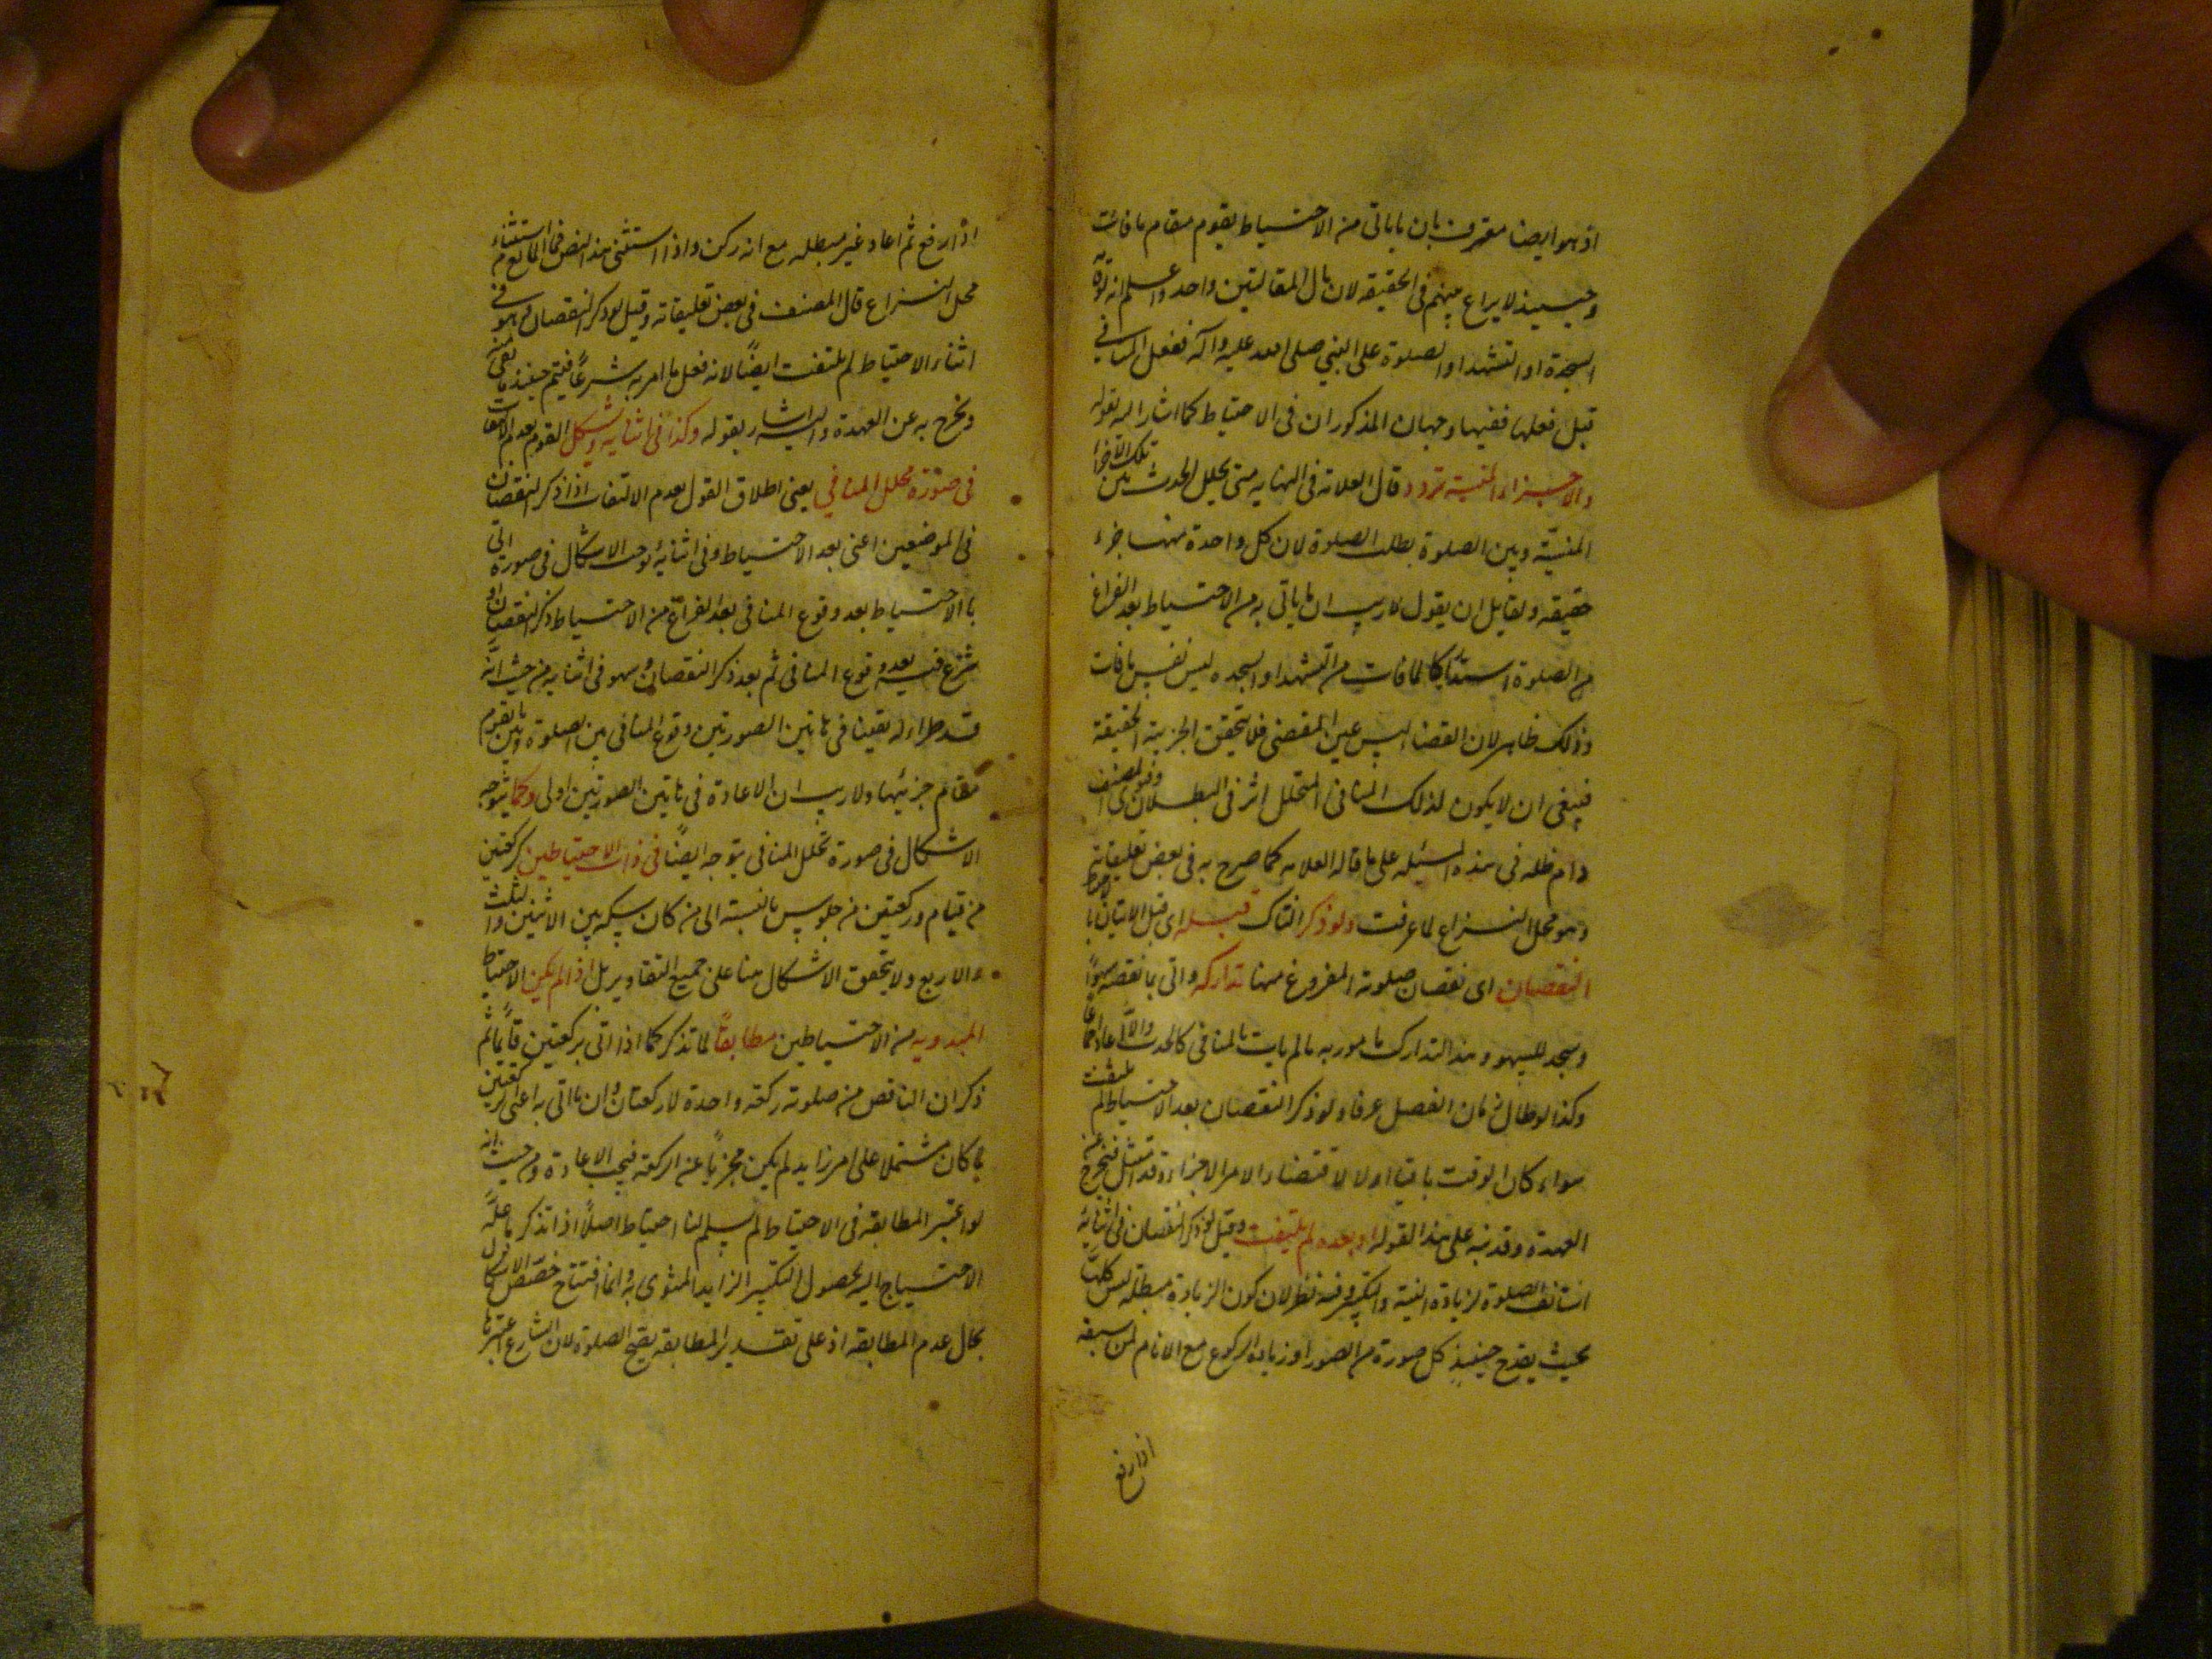 اذ هو ايضا معترف بان ما ياتى من الاحتياط يقوم مقام ما فات
وحينئذ لا نزاع بينهم فى الحقيقه لان مآل المقالتين واحد واعلم انه لو
السجدة او التشهد او الصلوة على النبي صلى الله عليه وآله ففعل المنافي
قبل فعلها ففيها وجهان المذكوران فى الاحتياط كما اشار اليه بقوله
والاجزاء المنسية تردد قال العلامة فى النهايه متى تخلل الحدث بين تلك الاجزاء
المنسيّة وبين الصلوة بطلت الصلوة لان كل واحدة منها جزء
حقيقه ولقايل ان يقول لا ريب ان ما ياتى به من الاحتياط بعد الفراغ
من الصلوة استدراكا لما فات من التشهد او السجده ليس نفس ما فات
وذلك ظاهر لان القضاء ليس عين المقضى فلا يتحقق الجزئية الحقيقة
فينبغى ان لا يكون لذلك المنافى المتخلل اثر فى البطلان وفتوى المصنف
دام ظله فى هذه المسئله على ما قاله العلامه كما صرح به فى بعض تعليقاته
وهو محل النزاع لما عرفت ولو ذكر الشاك قبله اى قبل الاتيان بالاحتياط
النقصان اى نقصان صلوته المفروغ منها تداركه واتى بما نقصه سهوًا
وسجد للسهو وهذا التدارك مامور به ما لم يات بالمنافى كالحدث والّا اعاد
وكذا لو طال زمان الفصل عرفا ولو ذكر النقصان بعد الاحتياط لم يلتفت
سواء كان الوقت باقيا او لا لاقتضاء الامر الاجزاء وقد امتثل فيخرج عن
العهدة وقد نبه على هذا القوله او بعده لم يلتفت وقيل لو ذكر النقصان فى اثنائه
استانف الصلوة لزيادة النية والتكبير وفيه نظر لان كون الزيادة مبطلة ليس كليّا
بحيث يقدح حينئذ كل صورة من الصور اذ زيادة الركوع مع الامام لمن سبقه
اذا رفع
اذا رفع ثم اعاد غير مبطله مع انه ركن واذا استثنى هذا النص فما المانع من استثناء
محل النزاع قال المصنف فى بعض تعليقاته وقيل لو ذكر النقصان وهو فى
اثناء الاحتياط لم يلتفت ايضًا لانه فعل ما امر به شرعًا فيتم حينئذ ما بقى منه
ويخرج به عن العهدة واليه اشار بقوله وكذا فى اثنايه ويشكل القوم بعدم الالتفات
فى صورة تخلل المنافي يعنى اطلاق القول بعدم الالتفات اذا ذكر النقصان
فى الموضعين اعنى بعد الاحتياط وفى اثنايه توجه الاشكال فى صورة اتى
بالاحتياط بعد وقوع المنافى بعد الفراغ من الاحتياط ذكر النقصان او
شرع فيه بعد وقوع المنافى ثم بعد ذكر النقصان وهو فى اثنايه من حيث انه
قد طراء له يقينا فى هاتين الصورتين وقوع المنافى بين الصلوة وبين ما يقوم
مقام جزئيها ولا ريب ان الاعادة فى هاتين الصورتين اولى وكما يتوجه
الاشكال فى صورة تخلل المنافى يتوجه ايضًا فى ذات الاحتياطين بركعتين
من قيام وركعتين من جلوس بالنسبة الى من كان شكه بين الاثنين والثلث
والاربع ولا يتحقق الاشكال هنا على جميع التقادير بل اذا لم يكن الاحتياط
المبدو به من الاحتياطين مطابقًا لما تذكر كما اذا اتى بركعتين قائمًا ثم
ذكر ان الناقص من صلوته ركعة واحدة لا ركعتان وان ما اتى به اعنى ركعتين
لما كان مشتملا على امر زايد لم يكن مجزيًا عن الركعة فيجب الاعادة ومن حيث انه
لو اعتبر المطابقه فى الاحتياط لم يسلم لنا احتياط اصلًا اذا تذكر ما عليه
الاحتياج اليه لحصول التكبير الزايد المنوى به وانما افتتاح خصّص الاشكال
بحال عدم المطابقه اذ على تقدير المطابقه يصح الصلوة لان الشارع اعتبرها